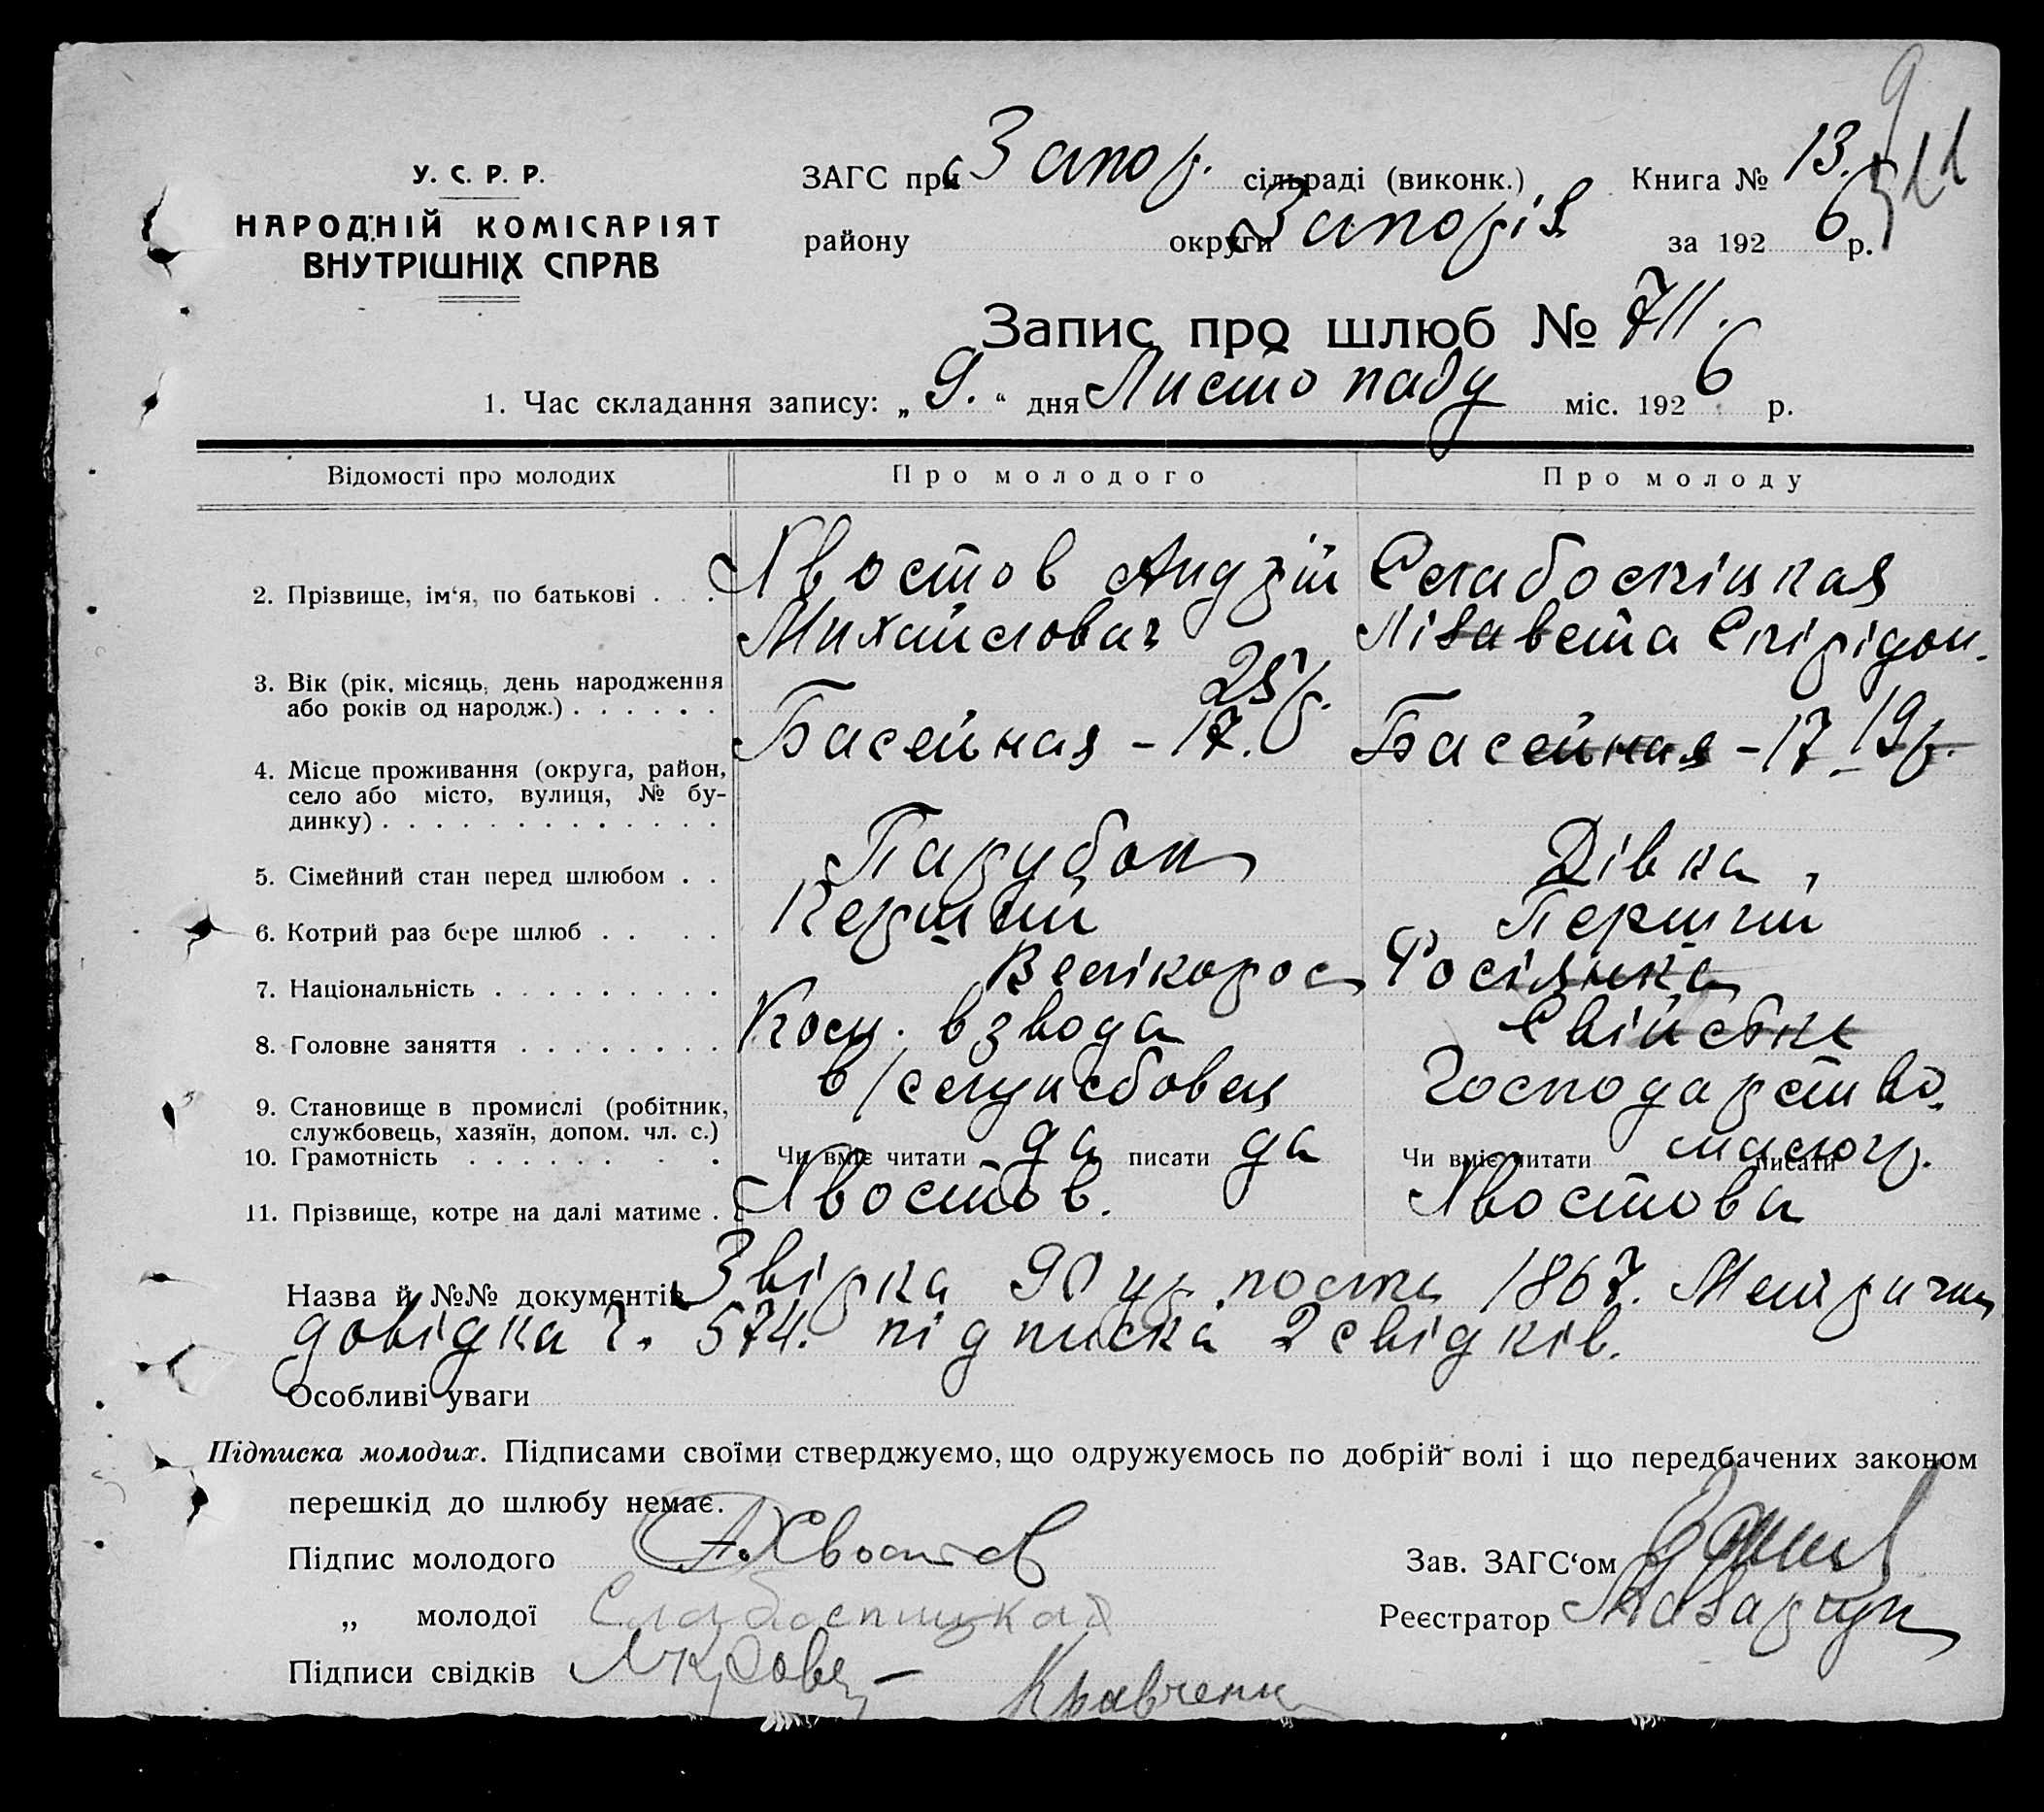 У. С. Р. Р.
НАРОДНІЙ КОМІСАРІЯТ
ВНУТРІШНІХ СПРАВ
ЗАГС при Запор. сільраді (виконк.) Книга № 13.
району округи Запоріз. за 1926 р.
Запис про шлюб № 711.
1. Час складання запису: „9.“ дня Листопаду міс. 1926 р.
Відомості про молодих Про молодого Про молоду
2. Прізвище, ім‘я, по батькові . . . Хвостов Андрій Слабоспіцкая
Михайлович Лізавета Спірідон.
3. Вік (рік, місяць, день народження
або років од народж.) . . . . . . 25 р. 19 р.
Басейная - 17. Басейная - 17
4. Місце проживання (округа, район,
село або місто, вулиця, № бу-
динку) . . . . . . . . . . . . .
5. Сімейний стан перед шлюбом . . Парубок Дівка
6. Котрий раз бере шлюб . . . . Перший Перший
7. Національність . . . . . . . . . Велікорос Росіянка
8. Головне заняття . . . . . . . . взвода Свійське
в/службовец Господарство.
9. Становище в промислі (робітник,
службовець, хазяїн, допом. чл. с.)
10. Грамотність . . . . . . . . Чи вміє читати да писати да Чи вміє читати малогр. писати
11. Прізвище, котре на далі матиме . Хвостов. Хвостова
Назва й №№ документів Звірка 90 полка 1867. Метрична
довідка ч. 574. підписка 2 свідків.
Особливі уваги
Підписка молодих. Підписами своїми стверджуємо, що одружуємось по добрій волі і що передбачених законом
перешкід до шлюбу немає.
Підпис молодого А.Хвостов Зав. ЗАГС‘ом
„ молодої Слабоспицкая Реєстратор
Підписи свідків Кравченко